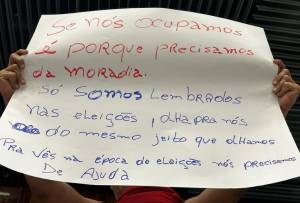 Se nós ocupamos
é porque precisamos
da moradia.
Só somos Lembrados
nas eleições, olha pra nós
do mesmo jeito que olhamos
Pra vês na época de eleições nós precisamos
De Ajuda